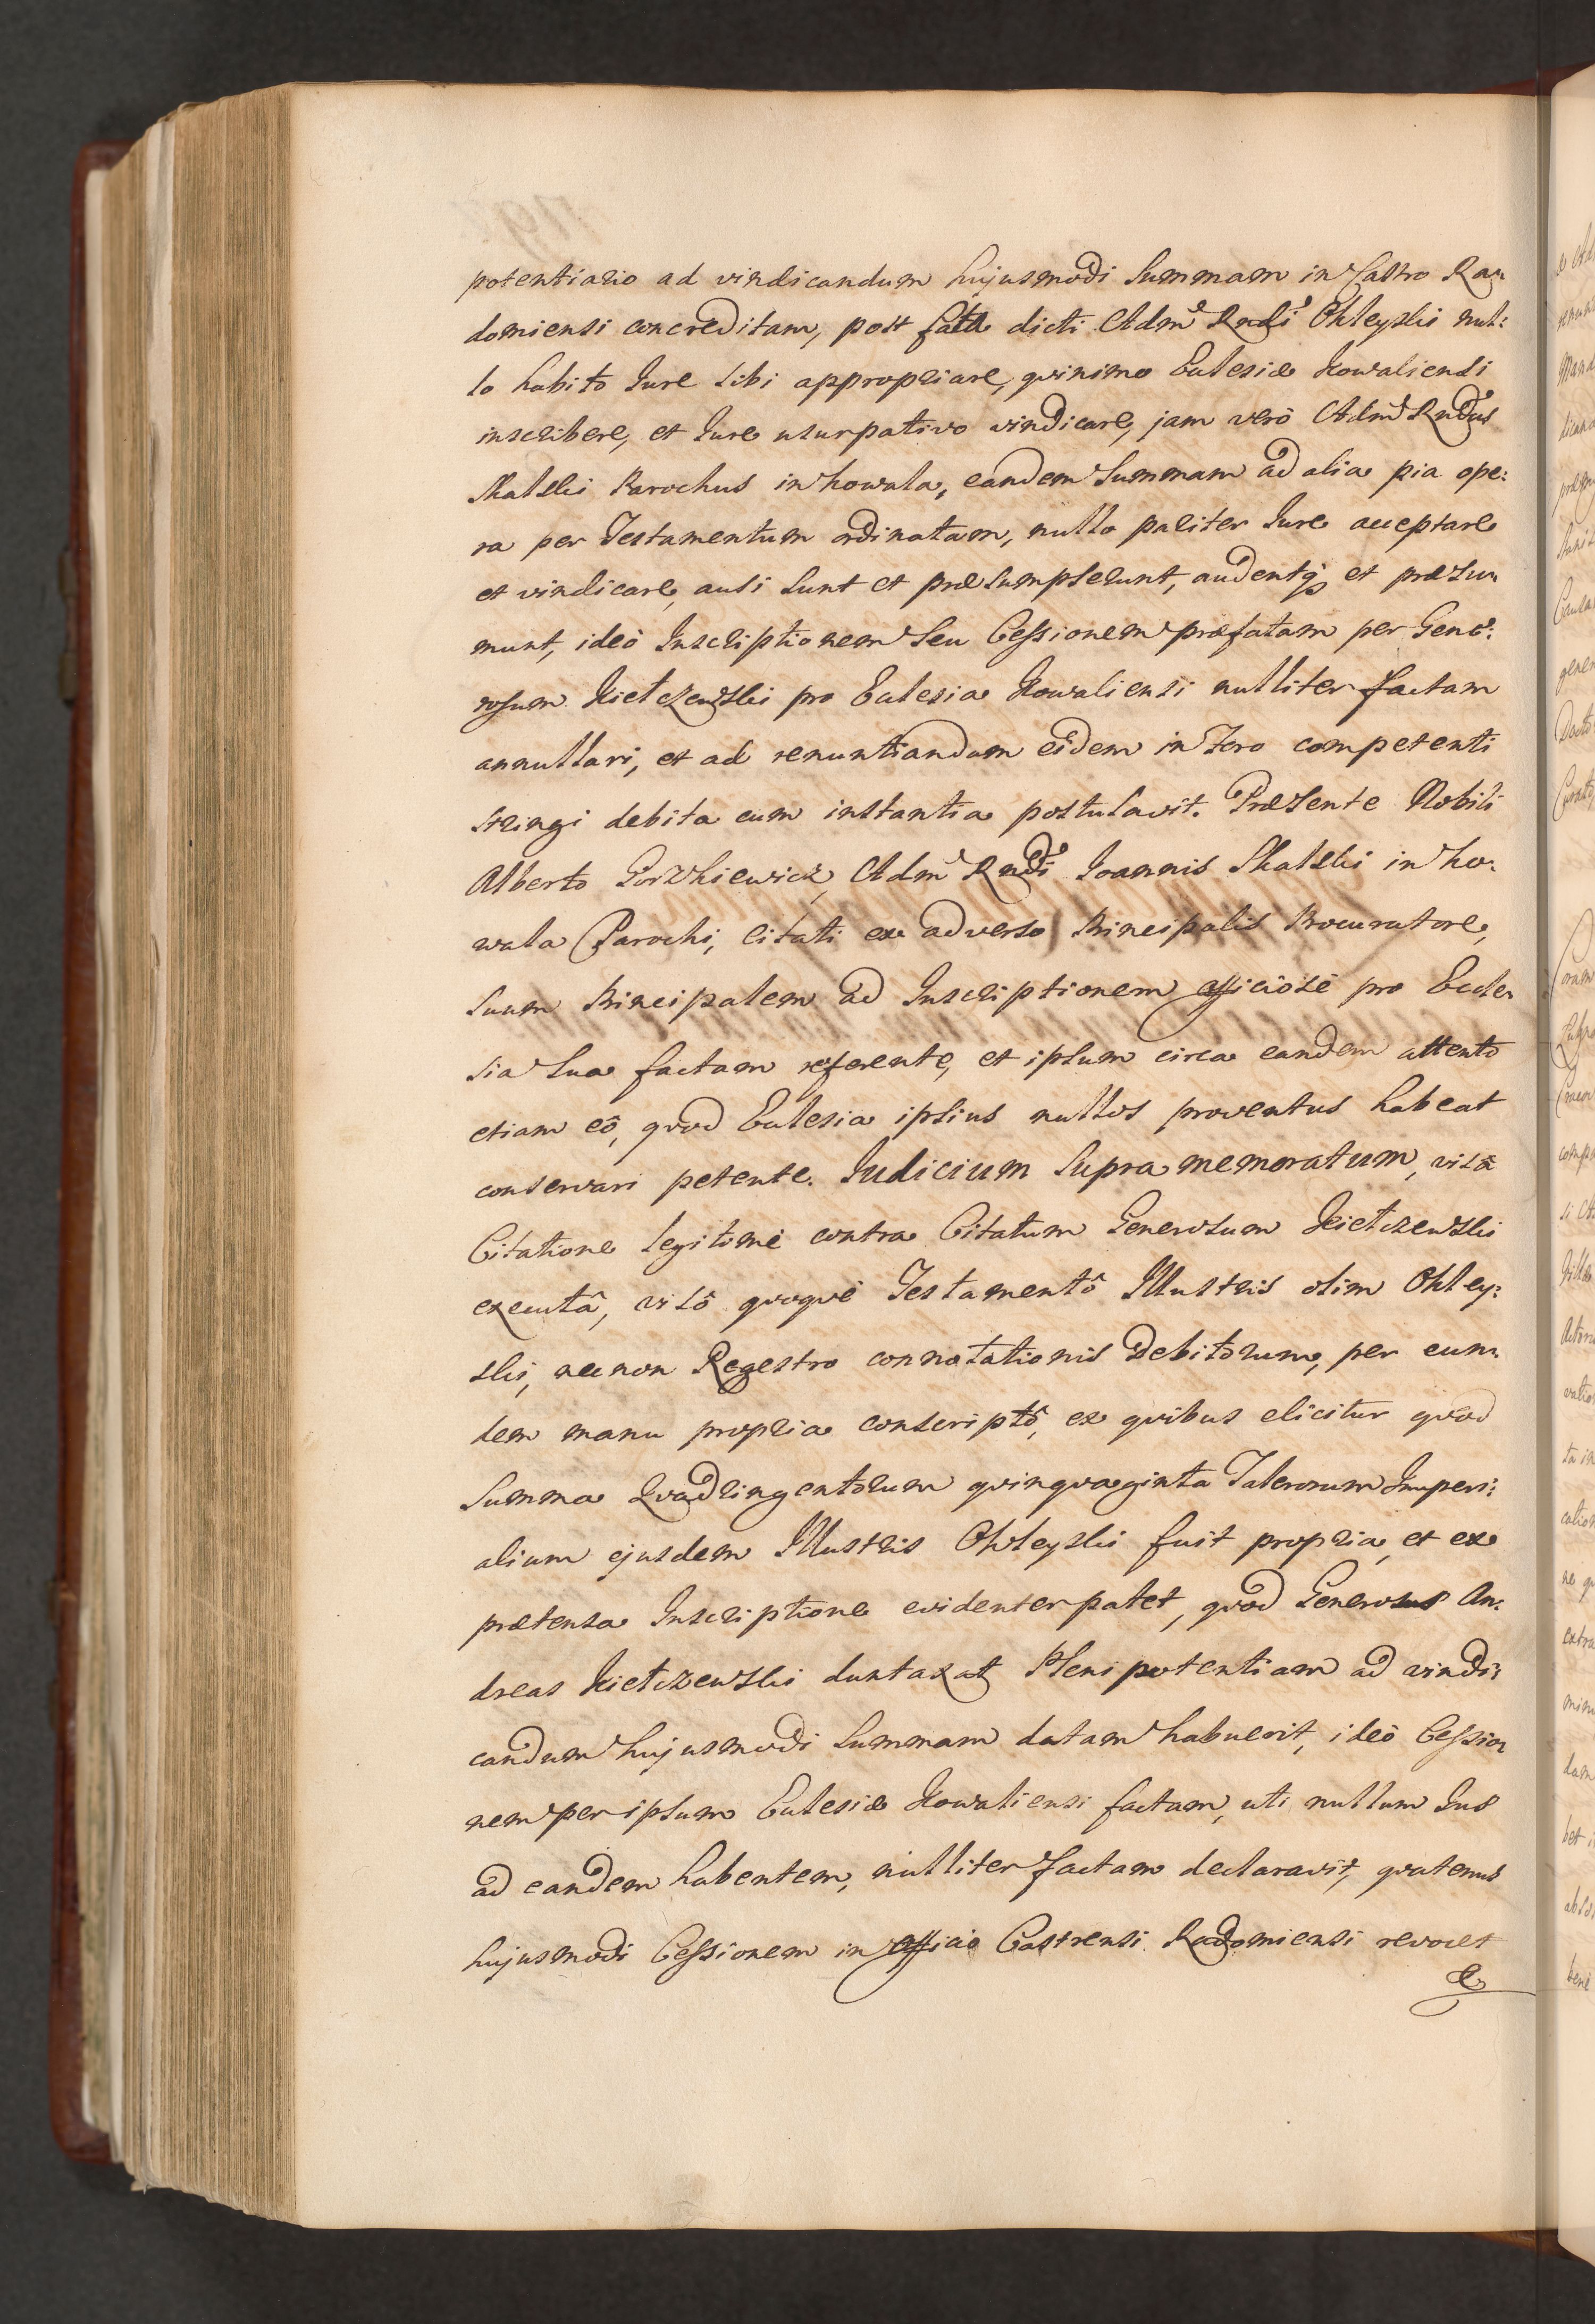 potentiario ad vindicandum hujusmodi Summam in Castro Ra-
domiensi concreditam, post fata dicti Adm Rndi Okleyski nul:
lo habito Jure sibi appropriare, quinimo Eclesiæ Kowaliensi
inscribere, et Jure usurpativo vindicare, jam verò Adm Rndus
Skalski Parochus in Kowala, eandem Summam ad alia pia ope:
ra per Testamentum ordinatam, nullo pariter Jure acceptare
et vindicare, ausi sunt et præsumpserunt, audentq et præsu-
munt, ideò Inscriptionem Seu Cessionem præfatam per Gene:
rosum Kietczewski pro Eclesia Kowaliensi nulliter factam
annullari, et ad renuntiandum eidem in Foro competenti
stringi debita cum instantia postulavit. Præsente Nobili
Alberto Gorzkiewicz, Adm Rndi Joannis Skalski in Ko-
wala Parochi, Citati ex adverso Principalis Procuratore,
Suum Principalem ad Inscriptionem officiosè pro Eccle-
sia Sua factam referente, et ipsum circa eandem attento
etiam eô, quod Eclesia ipsius nullos proventus habeat
conservari petente. Judicium Supra memoratum, visâ
Citatione legitimè contra Citatum Generosum Kietczewski
executâ, visô quoquè Testamentô Illustris olim Okley:
ski, necnon Regestro connotationis Debitorum, per eun-
dem manu propria conscriptô, ex quibus elicitur quod
Summa Quadringentorum quinquaginta Talerorum Imperi:
alium ejusdem Illustris Okleyski fuit propria, et ex
prætensa Inscriptione evidenter patet, quod Generosus An:
dreas Kietczewski duntaxat Plenipotentiam ad vindi:
candum hujusmodi Summam datam habuerit, ideò Cessio-
nem per ipsum Eclesiæ Kowaliensi factam, uti nullum Jus
ad eandem habentem, nulliter factam declaravit, quatenus
hujusmodi Cessionem in officio Castrensi Radomiensi revocet
&